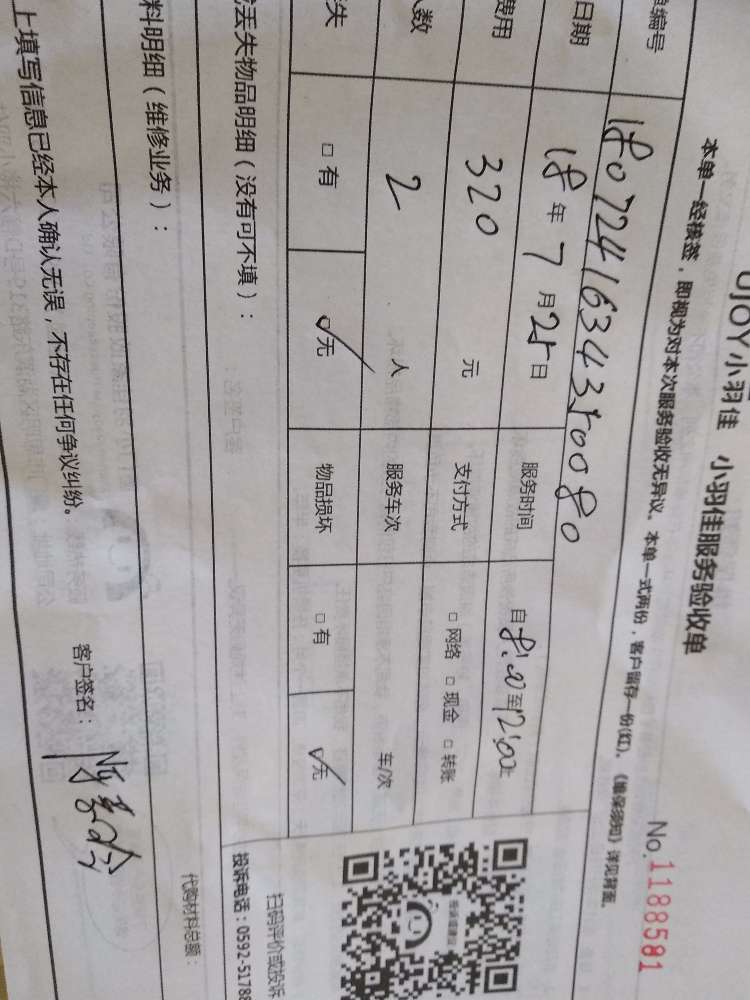 UJOY小羽佳 小羽佳服务验收单
No.1188581
本单一经核签，即视为对本次服务验收无异议。本单一式两份，客户留存一份(红)。《维保须知》详见背面。
单编号 18072416343500080
日期 18年7月25日 服务时间 自8:00至12:00止
费用 320元 支付方式 □网络 □现金 □转账
人数 2人 服务车次 车/次
失 □有 ✓无 物品损坏 □有 ✓无
丢失物品明细（没有可不填）：
扫码评价或投诉
投诉电话：0592-5178
料明细（维修业务）：
代购材料总额：
上填写信息已经本人确认无误，不存在任何争议纠纷。 客户签名：